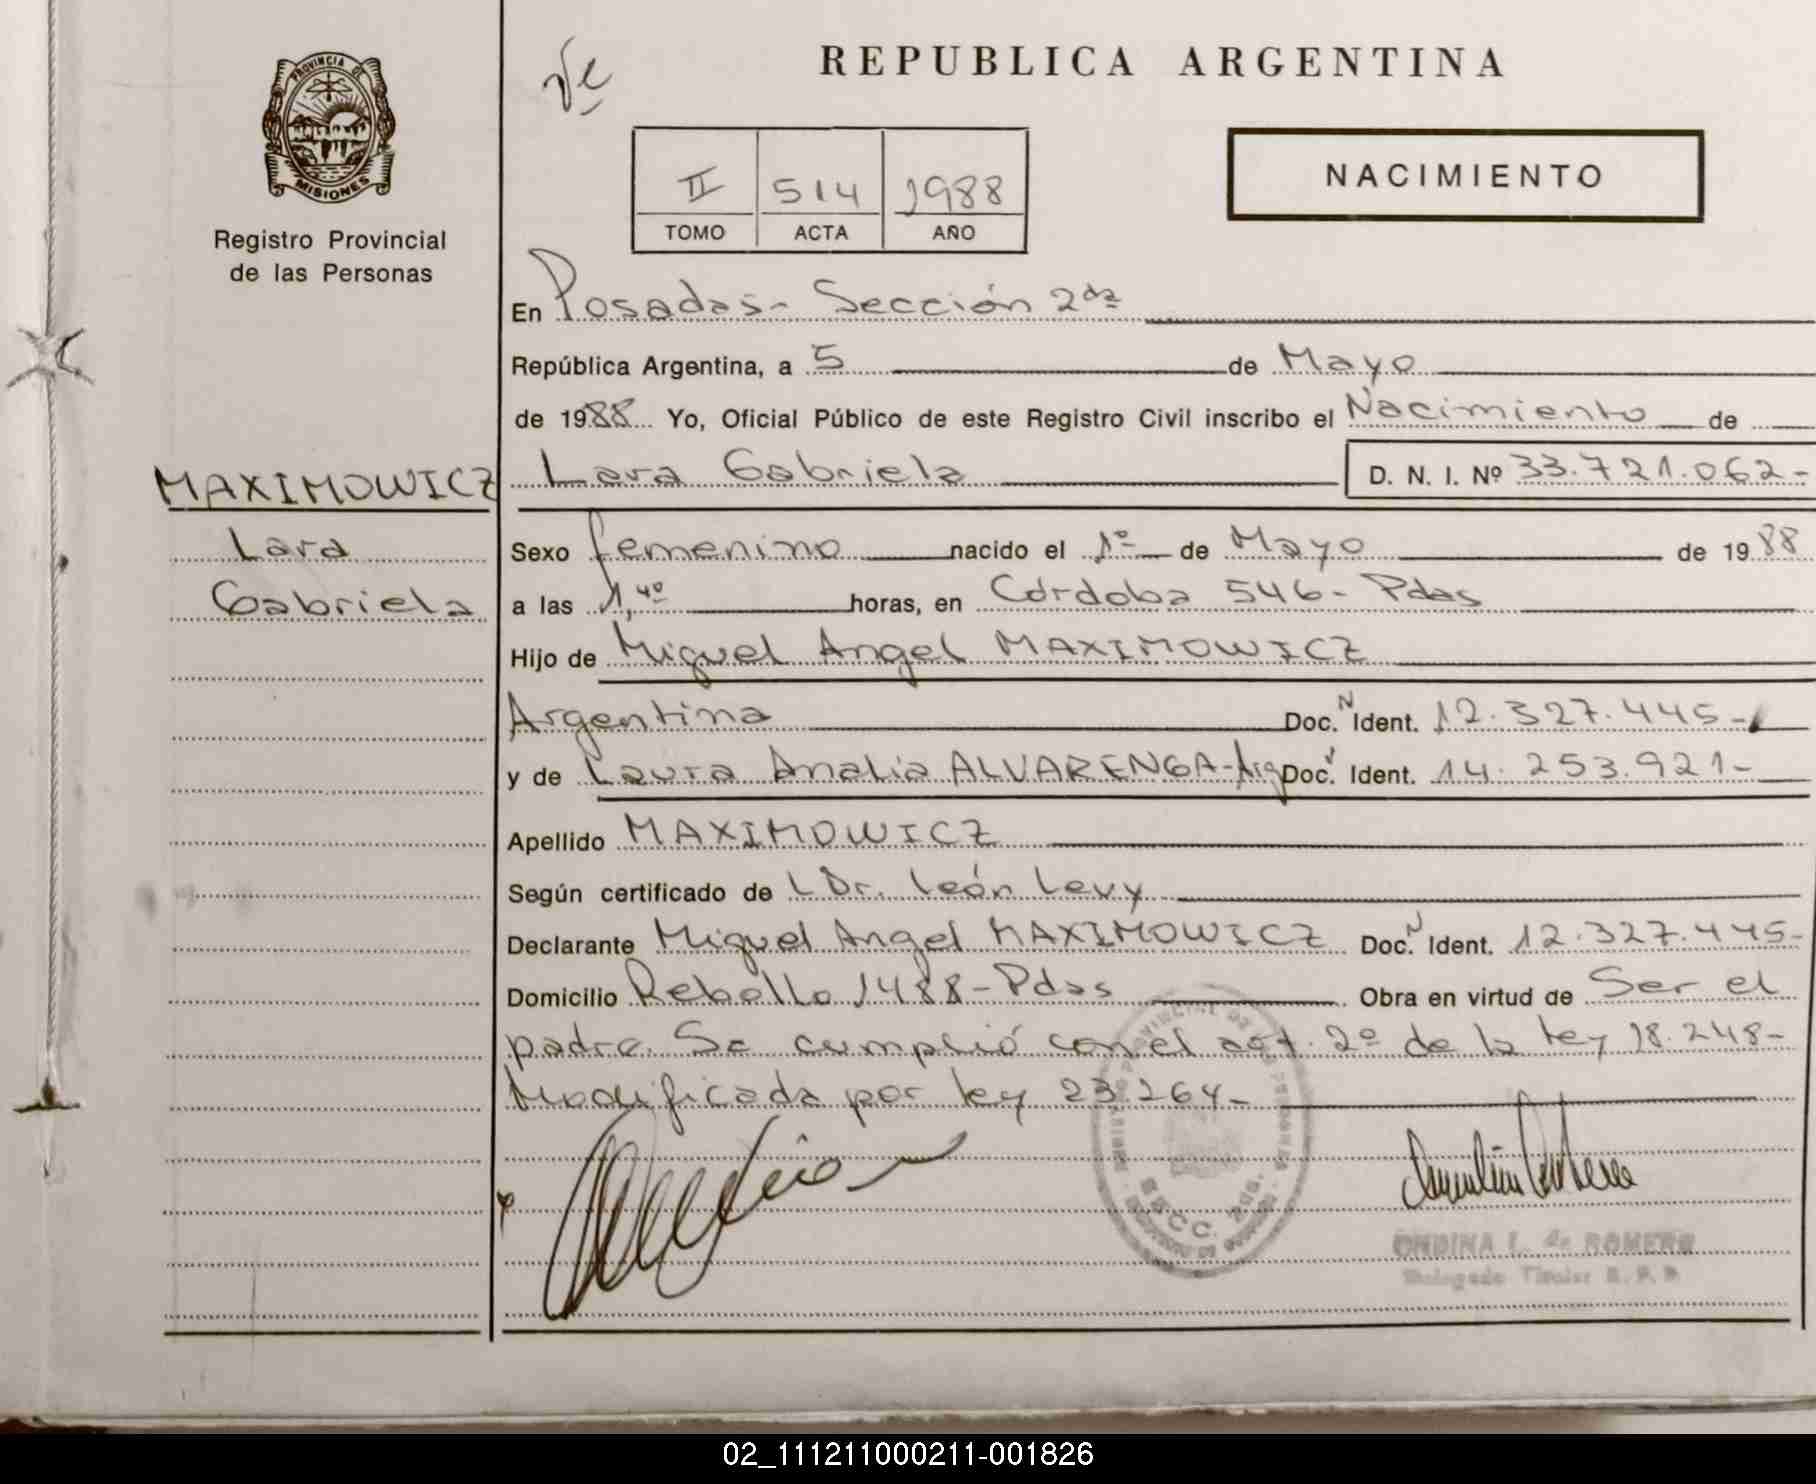 PROVINCIA DE
MISIONES
Registro Provincial
de las Personas
MAXIMOWICZ
Lara
Gabriela
REPUBLICA ARGENTINA
II 514 1988
TOMO ACTA AÑO
NACIMIENTO
En Posadas - Sección 2da
República Argentina, a 5 de Mayo
de 1988 Yo, Oficial Público de este Registro Civil inscribo el Nacimiento de
Lara Gabriela D. N. I. Nº 33.721.062-
Sexo femenino nacido el 1º de Mayo de 1988
a las 1,40 horas, en Córdoba 546 - Pdas
Hijo de Miguel Angel MAXIMOWICZ
Argentina Doc. N Ident. 12.327.445-
y de Laura Analia ALVARENGA - Arg Doc. Ident. 14.253.921-
Apellido MAXIMOWICZ
Según certificado de Dr. León Levy
Declarante Miguel Angel MAXIMOWICZ Doc. N Ident. 12.327.445-
Domicilio Rebollo 1488 - Pdas Obra en virtud de Ser el
padre. Se cumplió con el art. 2º de la ley 18.248-
Modificada por ley 23.264-
ONDINA I. de ROMERO
Delegado Titular R. P. P.
02_111211000211-001826